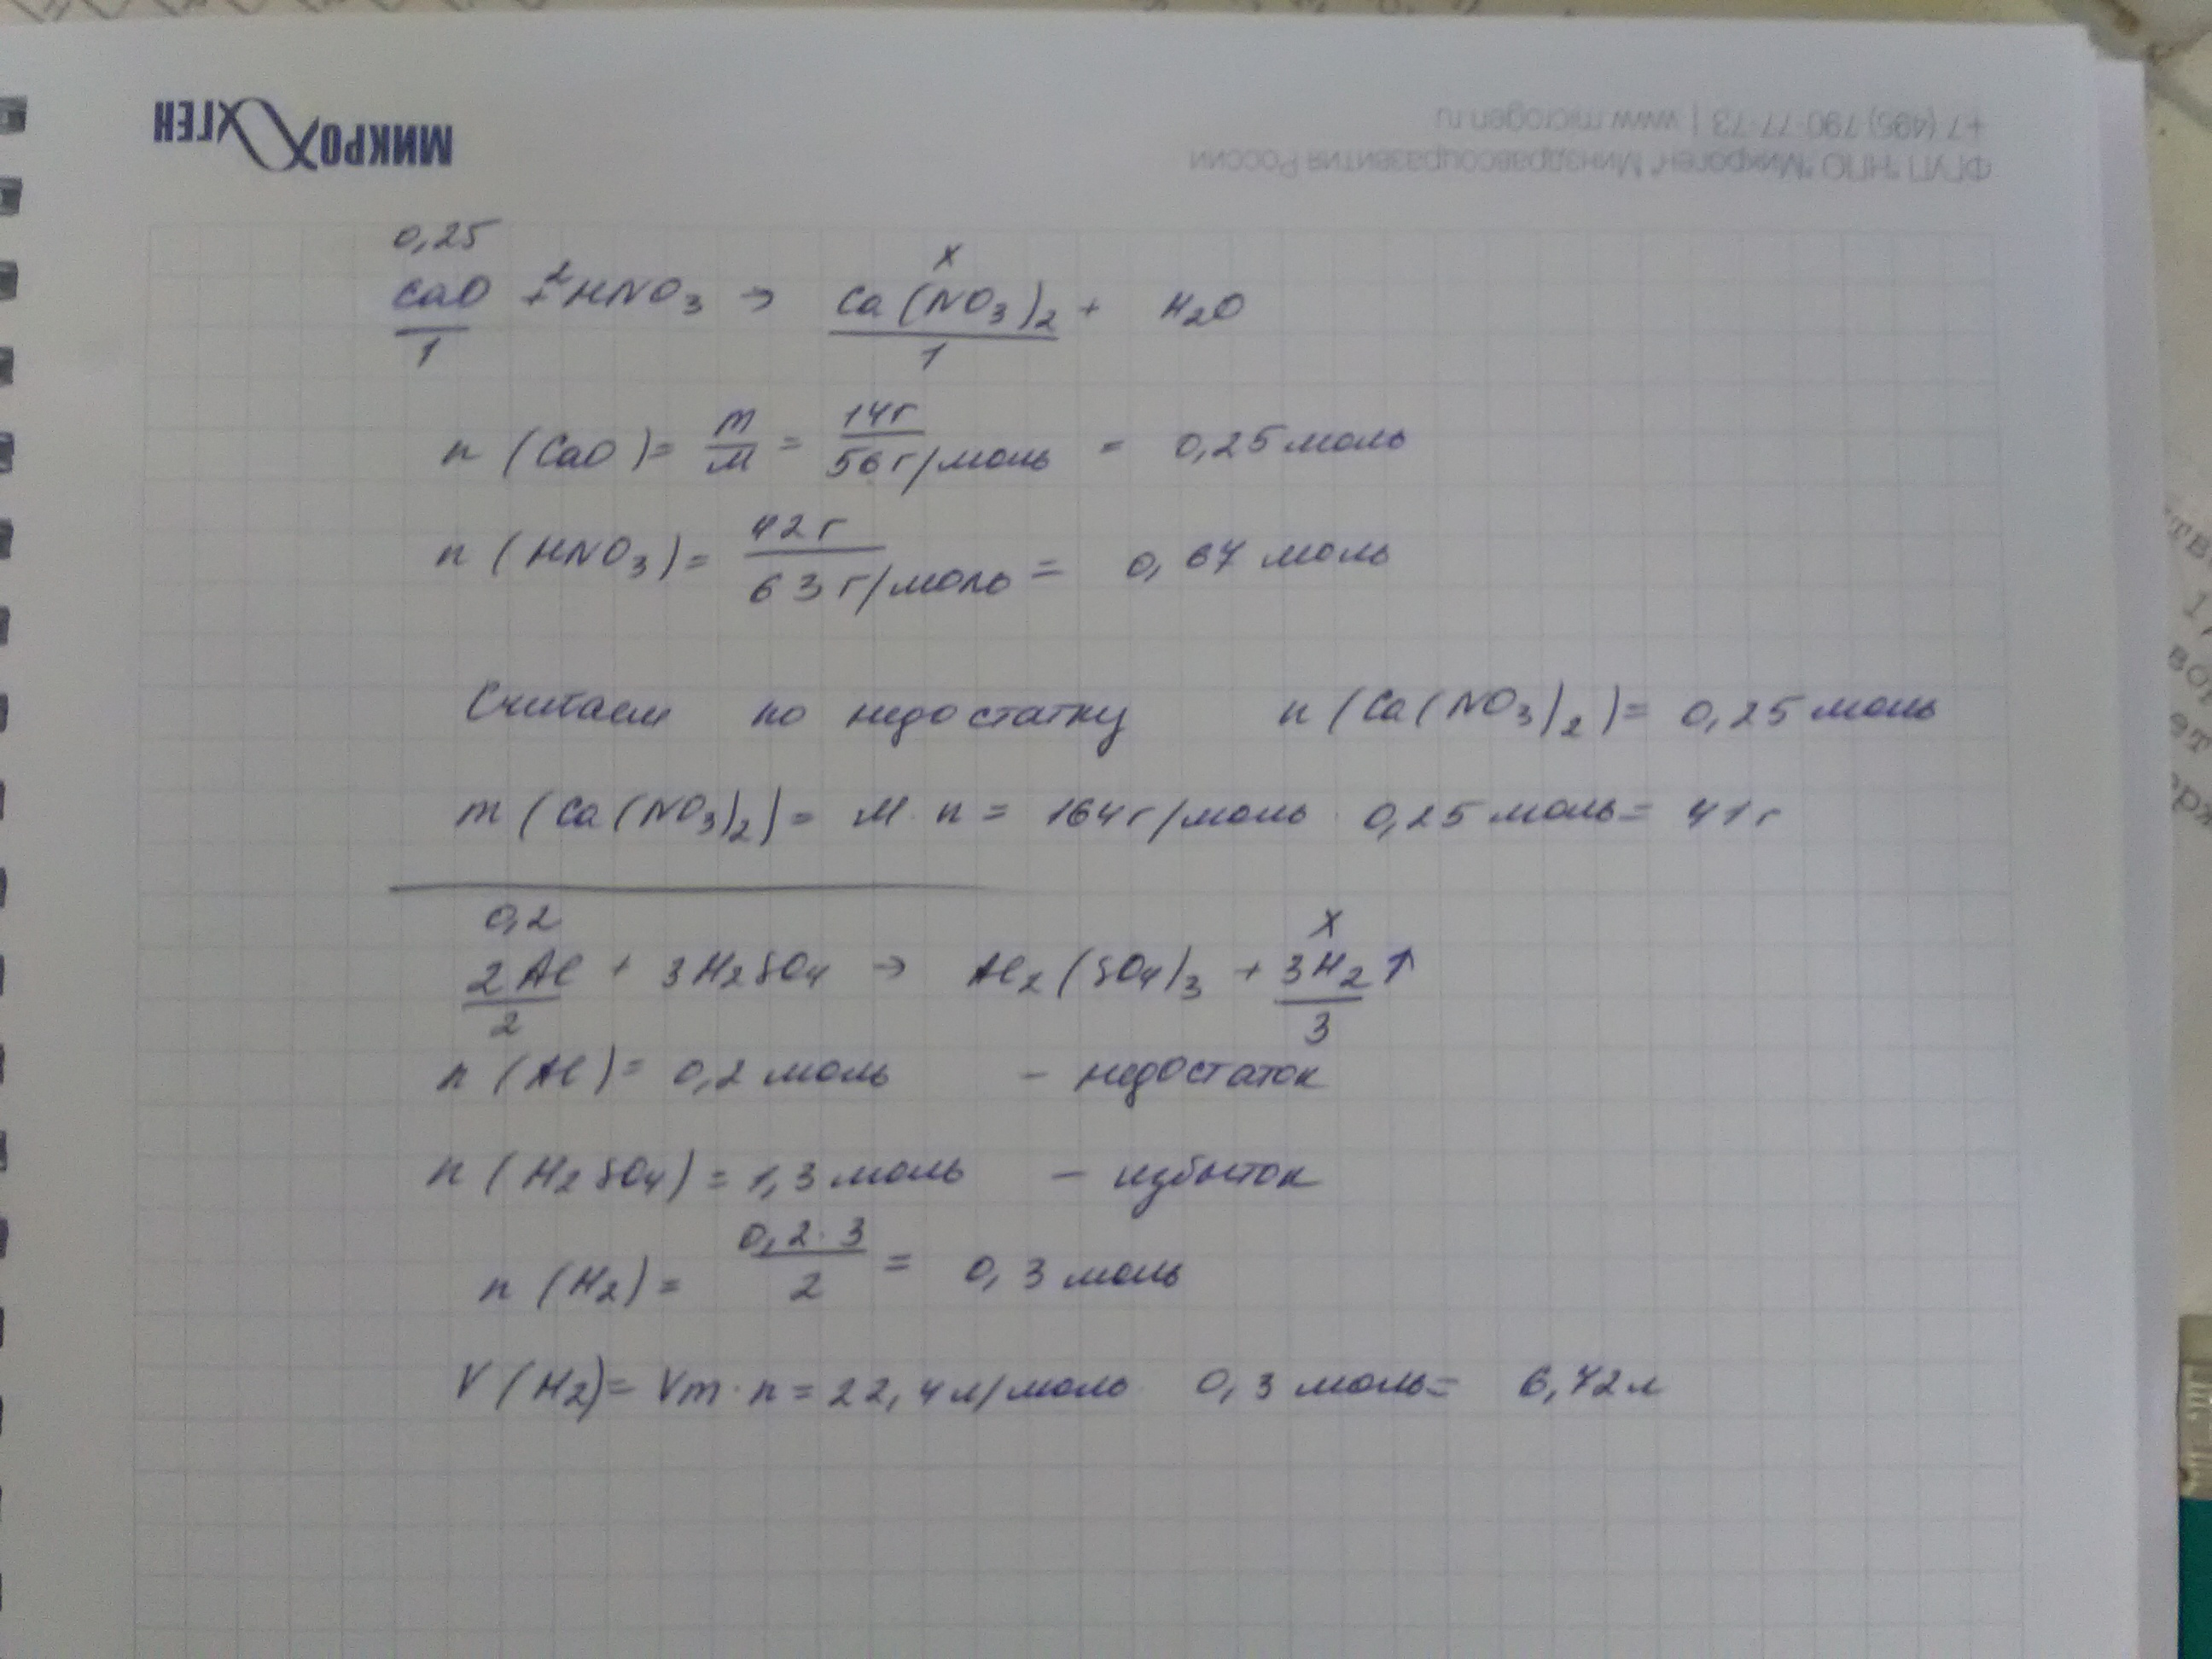 МИКРОГЕН
ФГУП "НПО "Микроген" Минздравсоцразвития России
+7 (495) 790-77-73 | www.microgen.ru
0,25 x
CaO + 2HNO3 → Ca(NO3)2 + H2O
1 1
n (CaO) = m/M = 14г / 56 г/моль = 0,25 моль
n (HNO3) = 42 г / 63 г/моль = 0,67 моль
Считаем по недостатку n (Ca(NO3)2) = 0,25 моль
m (Ca(NO3)2) = M · n = 164 г/моль · 0,25 моль = 41 г
0,2 x
2Al + 3H2SO4 → Al2(SO4)3 + 3H2↑
2 3
n (Al) = 0,2 моль - недостаток
n (H2SO4) = 1,3 моль - избыток
n (H2) = 0,2 · 3 / 2 = 0,3 моль
V (H2) = Vm · n = 22,4 л/моль · 0,3 моль = 6,72 л